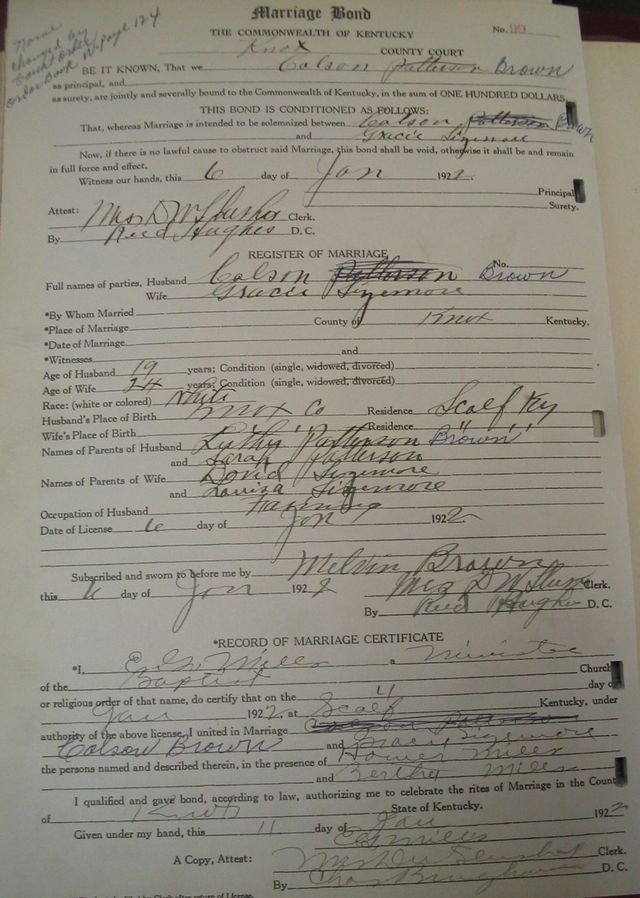 Name
changed by
Court Order
Order Book W page 124
Marriage Bond
THE COMMONWEALTH OF KENTUCKY
No. 99
Knox COUNTY COURT
BE IT KNOWN, That we Colson Patterson Brown
as principal, and
as surety, are jointly and severally bound to the Commonwealth of Kentucky, in the sum of ONE HUNDRED DOLLARS
THIS BOND IS CONDITIONED AS FOLLOWS:
That, whereas Marriage is intended to be solemnized between Colson Patterson Brown
and Gracie Sizemore
Now, if there is no lawful cause to obstruct said Marriage, this bond shall be void, otherwise it shall be and remain
in full force and effect.
Witness our hands, this 6 day of Jan 1922.
Principal
Surety.
Attest: Mrs D W Slusher Clerk.
By Reed Hughes D. C.
REGISTER OF MARRIAGE
No.
Full names of parties, Husband Colson Patterson Brown
Wife Gracie Sizemore
*By Whom Married
*Place of Marriage County of Knox Kentucky.
*Date of Marriage
*Witnesses and
Age of Husband 19 years; Condition (single, widowed, divorced)
Age of Wife 24 years; Condition (single, widowed, divorced)
Race: (white or colored) White
Husband's Place of Birth Knox Co Residence Scalf Ky
Wife's Place of Birth " " Residence " "
Names of Parents of Husband Luther Patterson Brown
and Sarah Patterson
Names of Parents of Wife David Sizemore
and Louiza Sizemore
Occupation of Husband Farming
Date of License 6 day of Jan 1922
Subscribed and sworn to before me by Melvin Brown
this 6 day of Jan 1922 Mrs D W Slusher Clerk.
By Reed Hughes D. C.
*RECORD OF MARRIAGE CERTIFICATE
*I, E. G. Mills a Minister
of the Baptist Church
or religious order of that name, do certify that on the 11 day o
Jan 1922, at Scalf Kentucky, under
authority of the above license, I united in Marriage Colson Patterson
Colson Brown and Gracie Sizemore
the persons named and described therein, in the presence of Homer Mills
and Bertha Mills
I qualified and gave bond, according to law, authorizing me to celebrate the rites of Marriage in the Count
of Knox State of Kentucky.
Given under my hand, this 11 day of Jan 1922
E G Mills
A Copy, Attest: Mrs D W Slusher Clerk.
By Chas Bingham D. C.